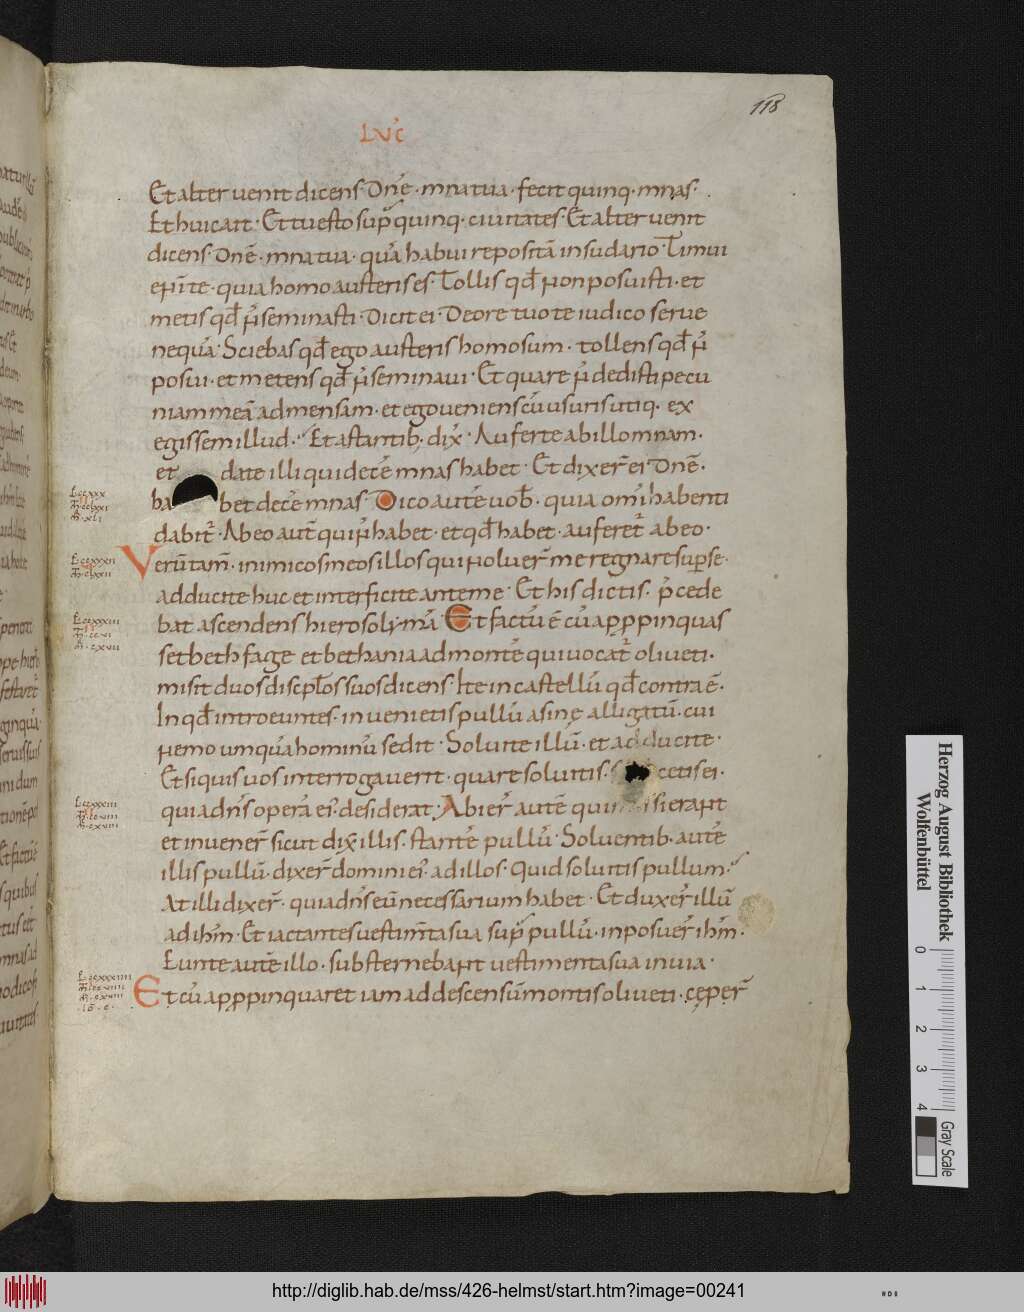 118
LVC̃
Et alter uenit dicens· Dñe· mna tua· fecit quinq· mnas·
Et huic ait· Et tu esto sup quinq· ciuitates· Et alter uenit
dicens· Dñe· mna tua· quā habui repositā in sudario· Timui
eni te· quia homo austeris es· Tollis qđ non posuisti· et
metis qđ ñ seminasti· Dicit ei· De ore tuo te iudico serue
nequā· Sciebas qđ ego austeris homo sum· tollens qđ ñ
posui· et metens qđ ñ seminaui· Et quare ñ dedisti pecu
niam meā ad mensam· et ego ueniens cū usuris utiq· ex
egissem illud· Et astantib; dix̄· Auferte ab illo mnam·
et date illi qui decē mnas habet· Et dixer̄ ei· Dñe·
ha bet decē mnas· Dico autē uob· quia omi habenti
dabit̄· Ab eo aut̄ qui ñ habet· et qđ habet· auferet̄ ab eo·
Verūtam̄· inimicos meos illos qui noluer̄ me regnare sup se·
adducite huc et interficite ante me· Et his dictis· p̄cede
bat ascendens hierosolymā· Et factū ē cū appropinquas
set bethfage et bethania ad montē qui uocat̄ oliueti·
misit duos discip̄los suos dicens· Ite in castellū qđ contra ē·
In qđ introeuntes· inuenietis pullū asinę alligatū· cui
nemo umquā hominū sedit· Soluite illū· et adducite·
Et si quis uos interrogauerit· quare soluitis· cetis ei·
quia dn̄s opera ei; desiderat· Abier̄ autē qui si erant
et inuener̄ sicut dix̄ illis· stantē pullū· Soluentib; autē
illis pullū· dixer̄ domini ei; ad illos· Quid soluitis pullum·
At illi dixer̄· quia dn̄s eū necessarium habet· Et duxer̄ illū
ad ihm̄· Et iactantes uestim̄ta sua sup pullū· inposuer̄ ihm̄·
Eunte autē illo· substernebant uestimenta sua in uia·
Et cū appropinquaret iam ad descensū montis oliueti· cęper̄
Herzog August Bibliothek
Wolfenbüttel
0 1 2 3 4
Gray Scale
http://diglib.hab.de/mss/426-helmst/start.htm?image=00241